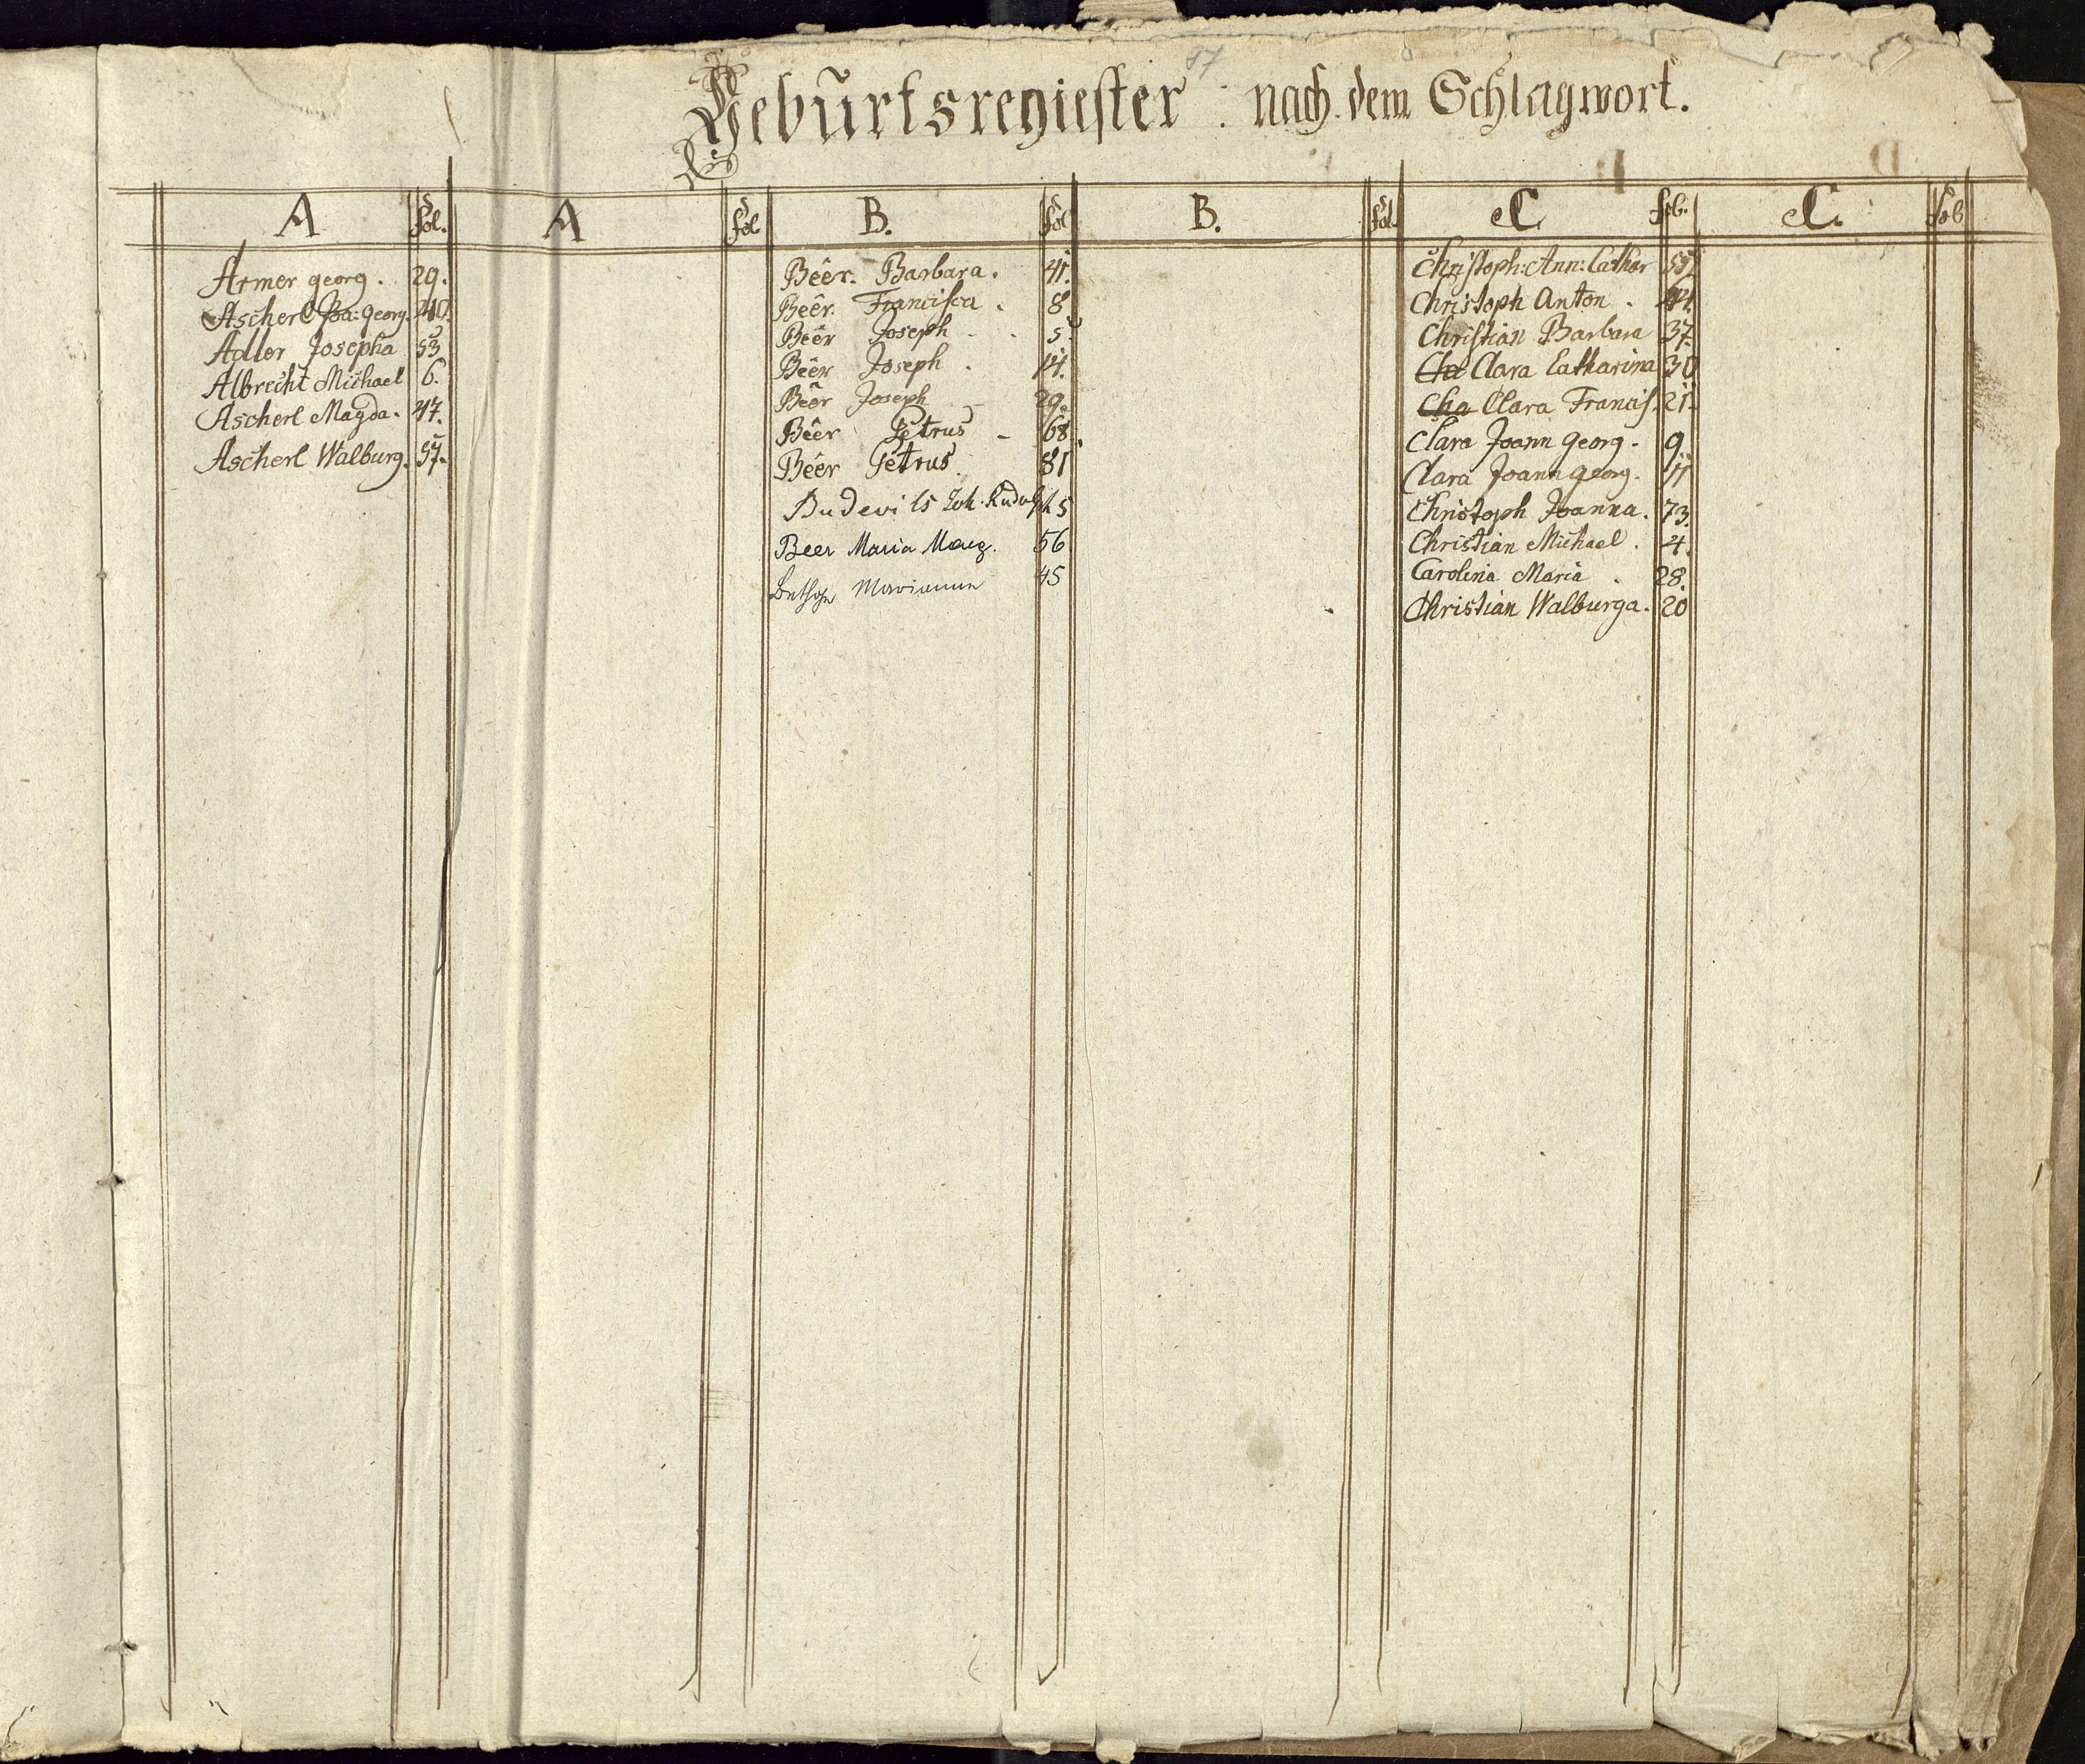 87
Geburtsregiester nach dem Schlagwort.
A fol. A fol B. fol B. fol. C fol. C. fol
Armer Georg. 29.
Ascherl Joa: Georg. 40.
Adler Josepha 53
Albrecht Michael 6.
Ascherl Magda. 47.
Ascherl Walburg. 57.
Beêr. Barbara. 41.
Beêr. Francisca. 8
Beêr Joseph 5
Beêr Joseph. 14.
Beêr Joseph 29.
Beêr Petrus 68
Beêr Petrus. 81
Joh. Rudolph 5
Beer Maria Marg. 56
Marianna 45
Christoph: Ann: Cathar 55
Christoph Anton.
Christian Barbara 37.
Cha Clara Catharina 30
Cha Clara Francis. 21.
Clara Joann Georg. 9.
Clara Joann Georg. 11
Christoph Joanna. 73.
Christian Michael. 4.
Carolina Maria. 28.
Christian Walburga. 20